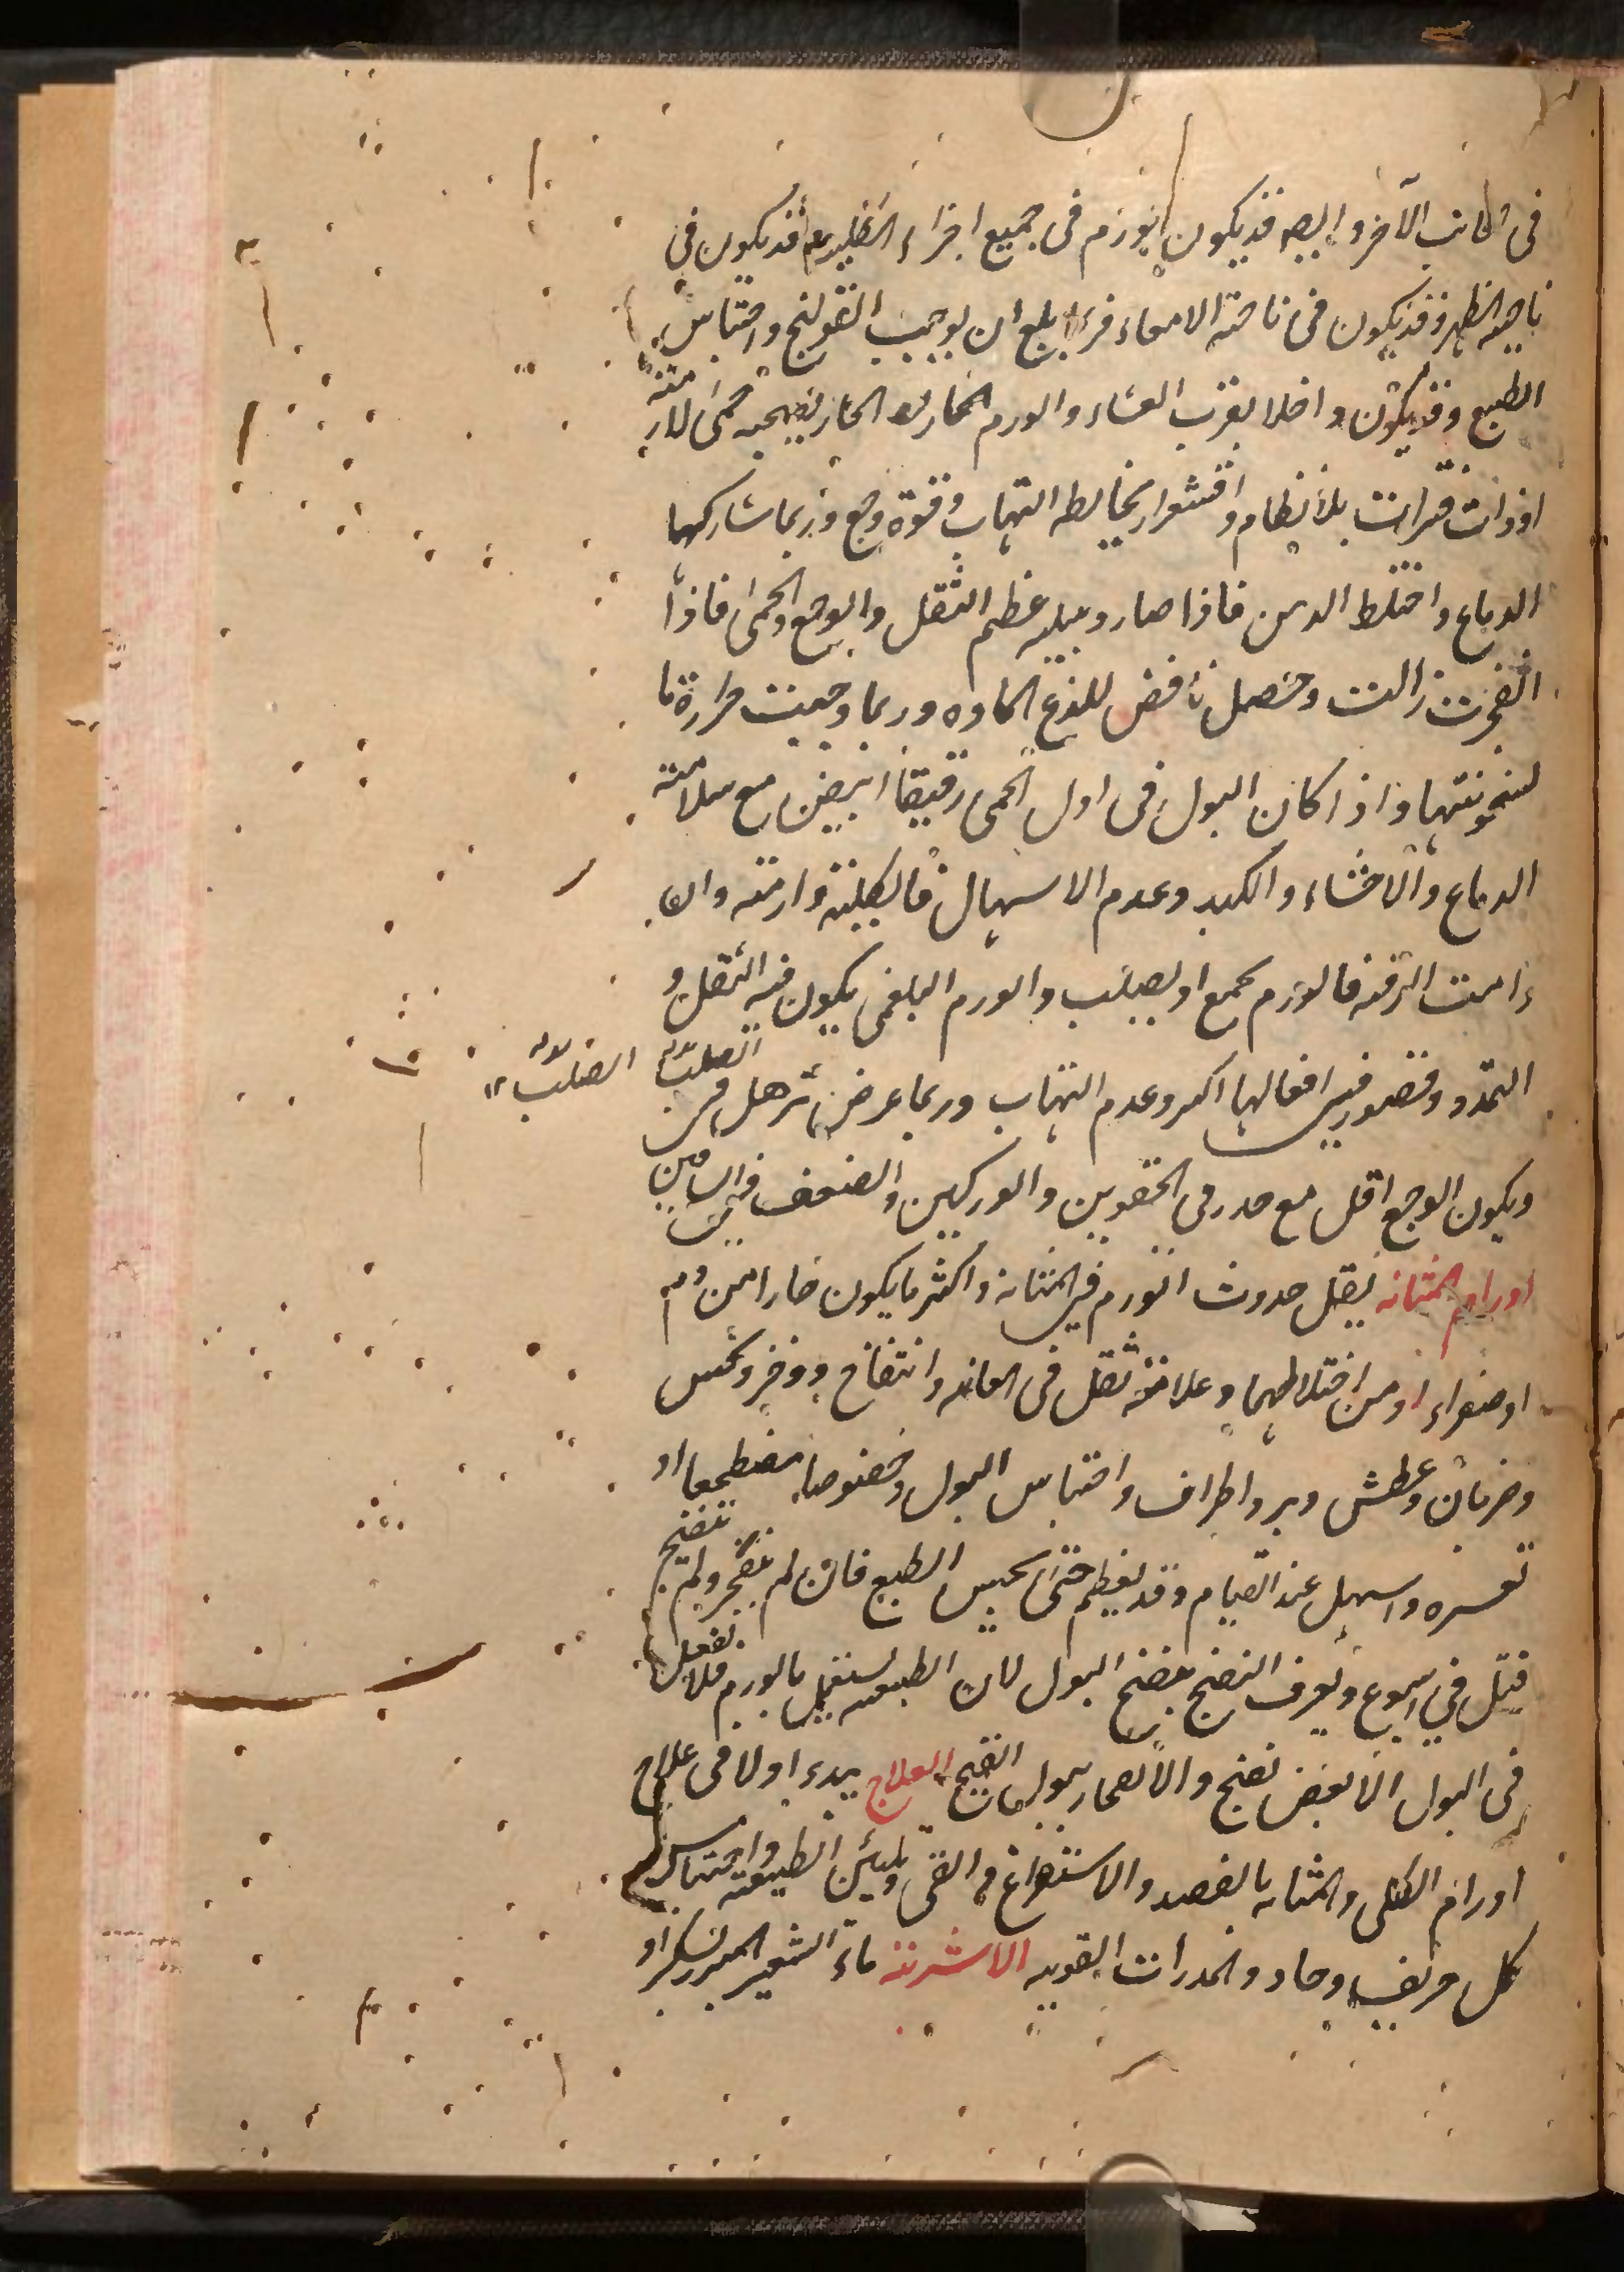 فى الجانب الآخر وايضا قد يكون الورم فى جميع اجزاء الكلية وقد يكون فى
ناحية الظهر وقد يكون فى ناحية الامعاء فربما بلغ ان يوجب القولنج واحتباس
الطبع وقد يكون داخلا بقرب الغشاء والورم الحار يصحبه حمى لازمة
او ذات فترات بلا نظام واقشعرار يخالطه التهاب وقوة وجع وربما شاركها
الدماغ واختلط الذهن فاذا صار دبيلة عظم الثقل والوجع والحمى فاذا
انفجرت زالت وحصل نافض للذع المادة وربما وجبت حرارة ما
لسخونتها واذا كان البول فى اول الحمى رقيقا ابيض مع سلامة
الدماغ والاحشاء والكبد وعدم الاسهال فالكلية وارمة وان
دامت الرقة فالورم يجمع او يصلب والورم البلغمى يكون فيه الثقل و
التمدد وقصور فى افعالها اكثر وعدم التهاب وربما عرض ترهل فى
الصلب
ويكون الوجع اقل مع خدر فى الحقوين والوركين والضعف فى الساقين
اورام المثانه يقل حدوث الورم فى المثانة واكثر ما يكون حارا من دم
او صفراء او من اختلاطهما وعلامته ثقل فى العانه وانتفاخ ووخز ونخس
وضربان وعطش وبرد اطراف واحتباس البول وخصوصا مضطجعا او
تعسره واسهل عند القيام وقد يعظم حتى يحبس الطبع فان لم ينفجر ولم ينضج
قتل فى اسبوع ويعرف النضج بنضج البول لان الطبيعه تشتغل بالورم فلا تفعل
فى البول الا بعض نضج والانفجار ببول القيح العلاج يبدء اولا فى علاج
اورام الكلى والمثانه بالفصد والاستفراغ والقى وتليين الطبيعة واجتناب
كل حريف وحاد والمدرات القويه الاشربة ماء الشعير المبرد بسكر او